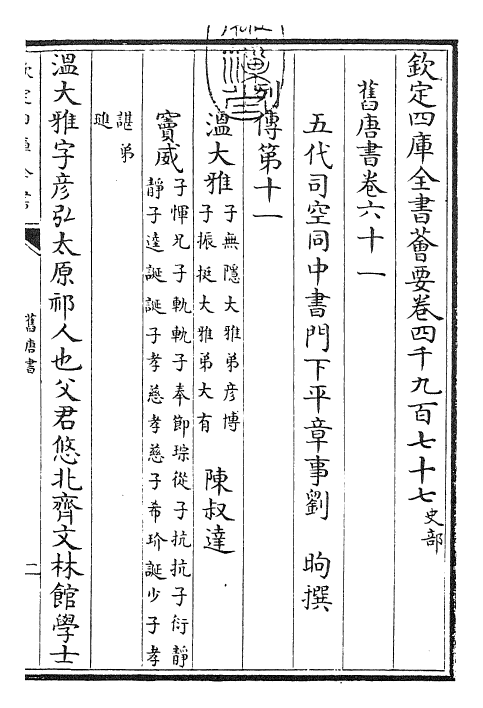 欽定四庫全書薈要卷四千九百七十七 史部
舊唐書卷六十一
五代司空同中書門下平章事劉 昫撰
列傳第十一
溫大雅 子無隱大雅弟彦博
子振挺大雅弟大有 陳叔達
竇威 子惲兄子軌軌子奉節琮從子抗抗子衍靜
靜子達誕誕子孝慈孝慈子希玠誕少子孝
諶弟
璡
溫大雅字彦弘太原祁人也父君悠北齊文林館學士
舊唐書